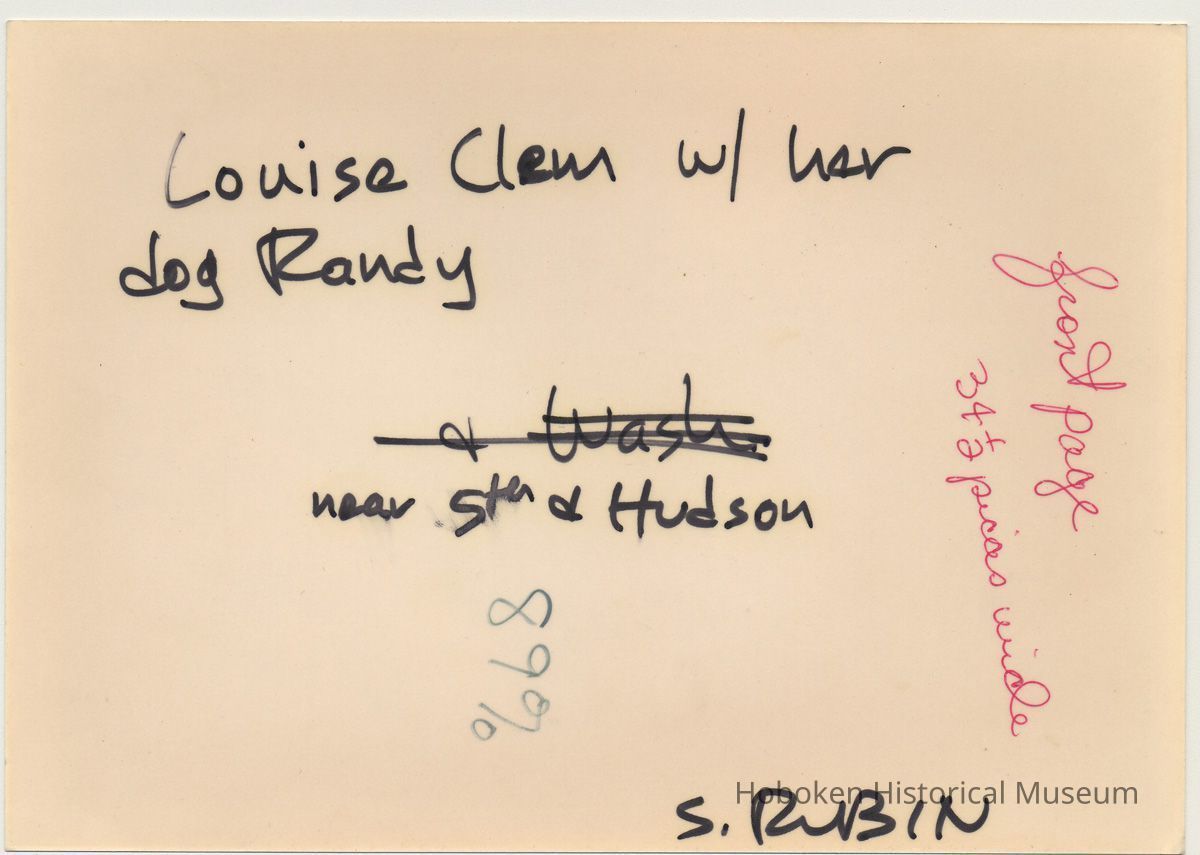 Louise Clem w/ her
dog Randy
& Wash.
near 5th & Hudson
front page
34 1/2 picas wide
89%
S. RUBIN
Hoboken Historical Museum